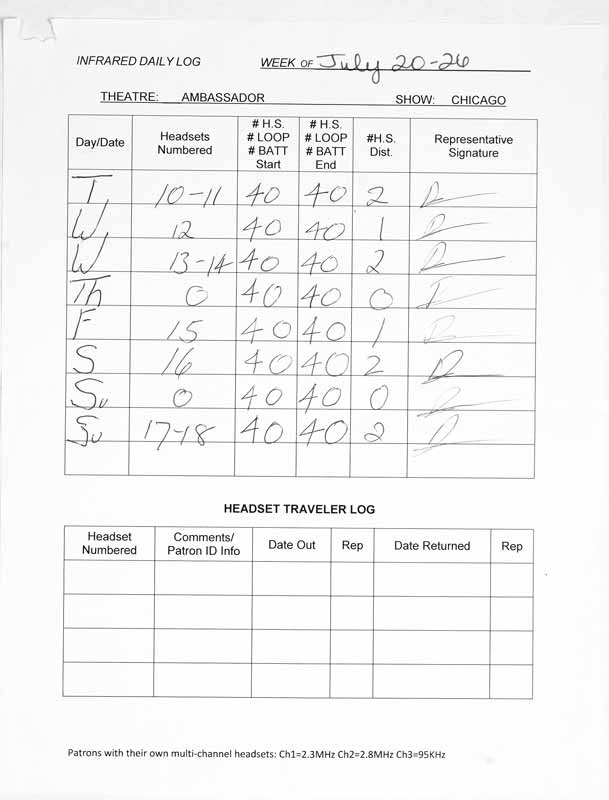 INFRARED DAILY LOG WEEK OF July 20-26
THEATRE: AMBASSADOR SHOW: CHICAGO
Day/Date Headsets Numbered # H.S. # LOOP # BATT Start # H.S. # LOOP # BATT End #H.S. Dist. Representative Signature
T, 10-11 40 40 2
W, 12 40 40 1
W 13-14 40 40 2
Th 0 40 40 0
F 15 40 40 1
S 16 40 40 2
Su 0 40 40 0
Su 17-18 40 40 2
HEADSET TRAVELER LOG
Headset Numbered Comments/ Patron ID Info Date Out Rep Date Returned Rep
Patrons with their own multi-channel headsets: Ch1=2.3MHz Ch2=2.8MHz Ch3=95KHz